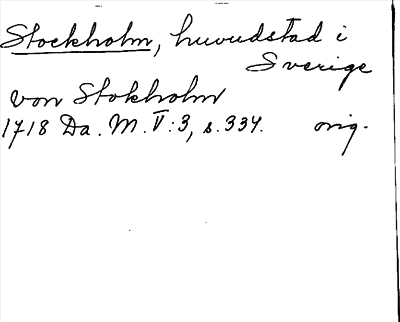 Stockholm, huvudstad i
Sverige
von Stokholm
1718 Da. M. V:3, s. 334. orig.